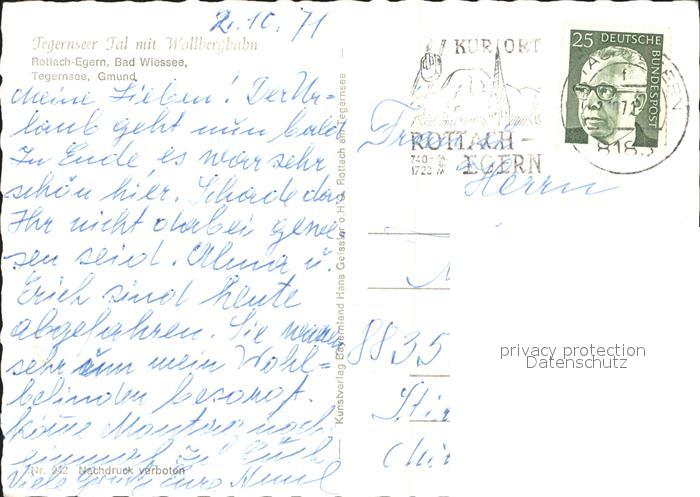 2.10.71
Tegernseer Tal mit Wallbergbahn
Rottach-Egern, Bad Wiessee,
Tegernsee, Gmund
Meine Lieben! Der Ur-
laub geht nun bald
zu Ende es war sehr
schön hier. Schade das
Ihr nicht dabei gewe-
sen seid. Alma u.
Erich sind heute
abgefahren. Sie waren
sehr um mein Wohl-
befinden besorgt.
Komme Montag noch
einmal zu Euch
Viele Grüße Eure
Nr. 942 Nachdruck verboten
Kunstverlag Bayernland Hans Geissler o.H.G. Rottach am Tegernsee
KURORT
ROTTACH-
EGERN
740-
1723 M
25 DEUTSCHE
BUNDESPOST
8183
Herrn
8835
privacy protection
Datenschutz